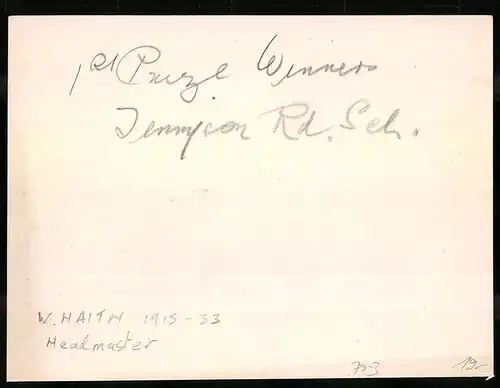 1st Prize Winners
Tennyson Rd. Sch.
W. HAITH 1915-33
Headmaster
793
19,-